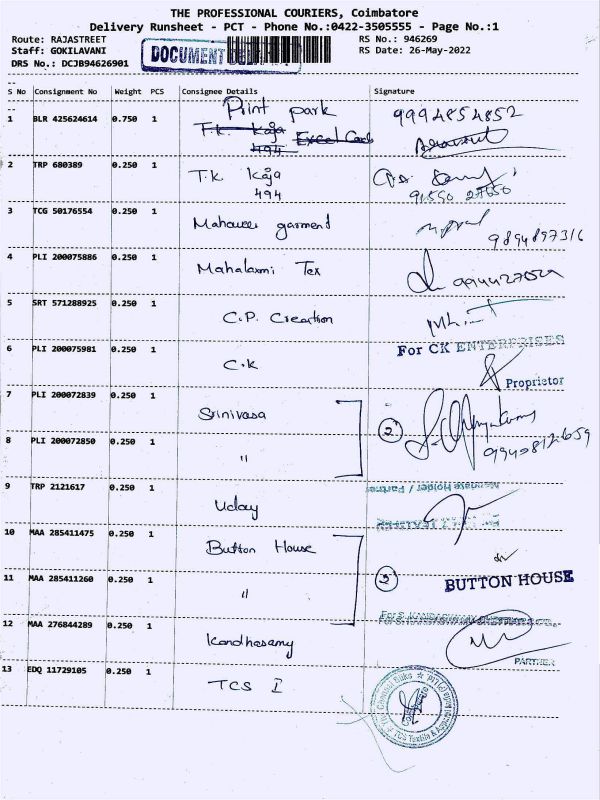 THE PROFESSIONAL COURIERS, Coimbatore
Delivery Runsheet - PCT - Phone No.:0422-3505555 - Page No.:1
Route: RAJASTREET RS No.: 946269
Staff: GOKILAVANI DOCUMENT RS Date: 26-May-2022
DRS No.: DCJB94626901
S No Consignment No Weight PCS Consignee Details Signature
1 BLR 425624614 0.750 1 Print park 9994854852
T.K Kaja Excel Cards
494
2 TRP 680389 0.250 1 T.K Kaja
494
3 TCG 50176554 0.250 1 Mahaveer garment 9894897316
4 PLI 200075886 0.250 1 Mahalaxmi Tex
5 SRT 571288925 0.250 1 C.P. Creation
6 PLI 200075981 0.250 1 C.K For CK ENTERPRISES
Proprietor
7 PLI 200072839 0.250 1 Srinivasa 2
8 PLI 200072850 0.250 1 " 9940812659
9 TRP 2121617 0.250 1 Uday Holder / Partner
10 MAA 285411475 0.250 1 Button House
11 MAA 285411260 0.250 1 " 2 BUTTON HOUSE
12 MAA 276844289 0.250 1 Kandhasamy
PARTNER
13 EDQ 11729105 0.250 1 TCS I